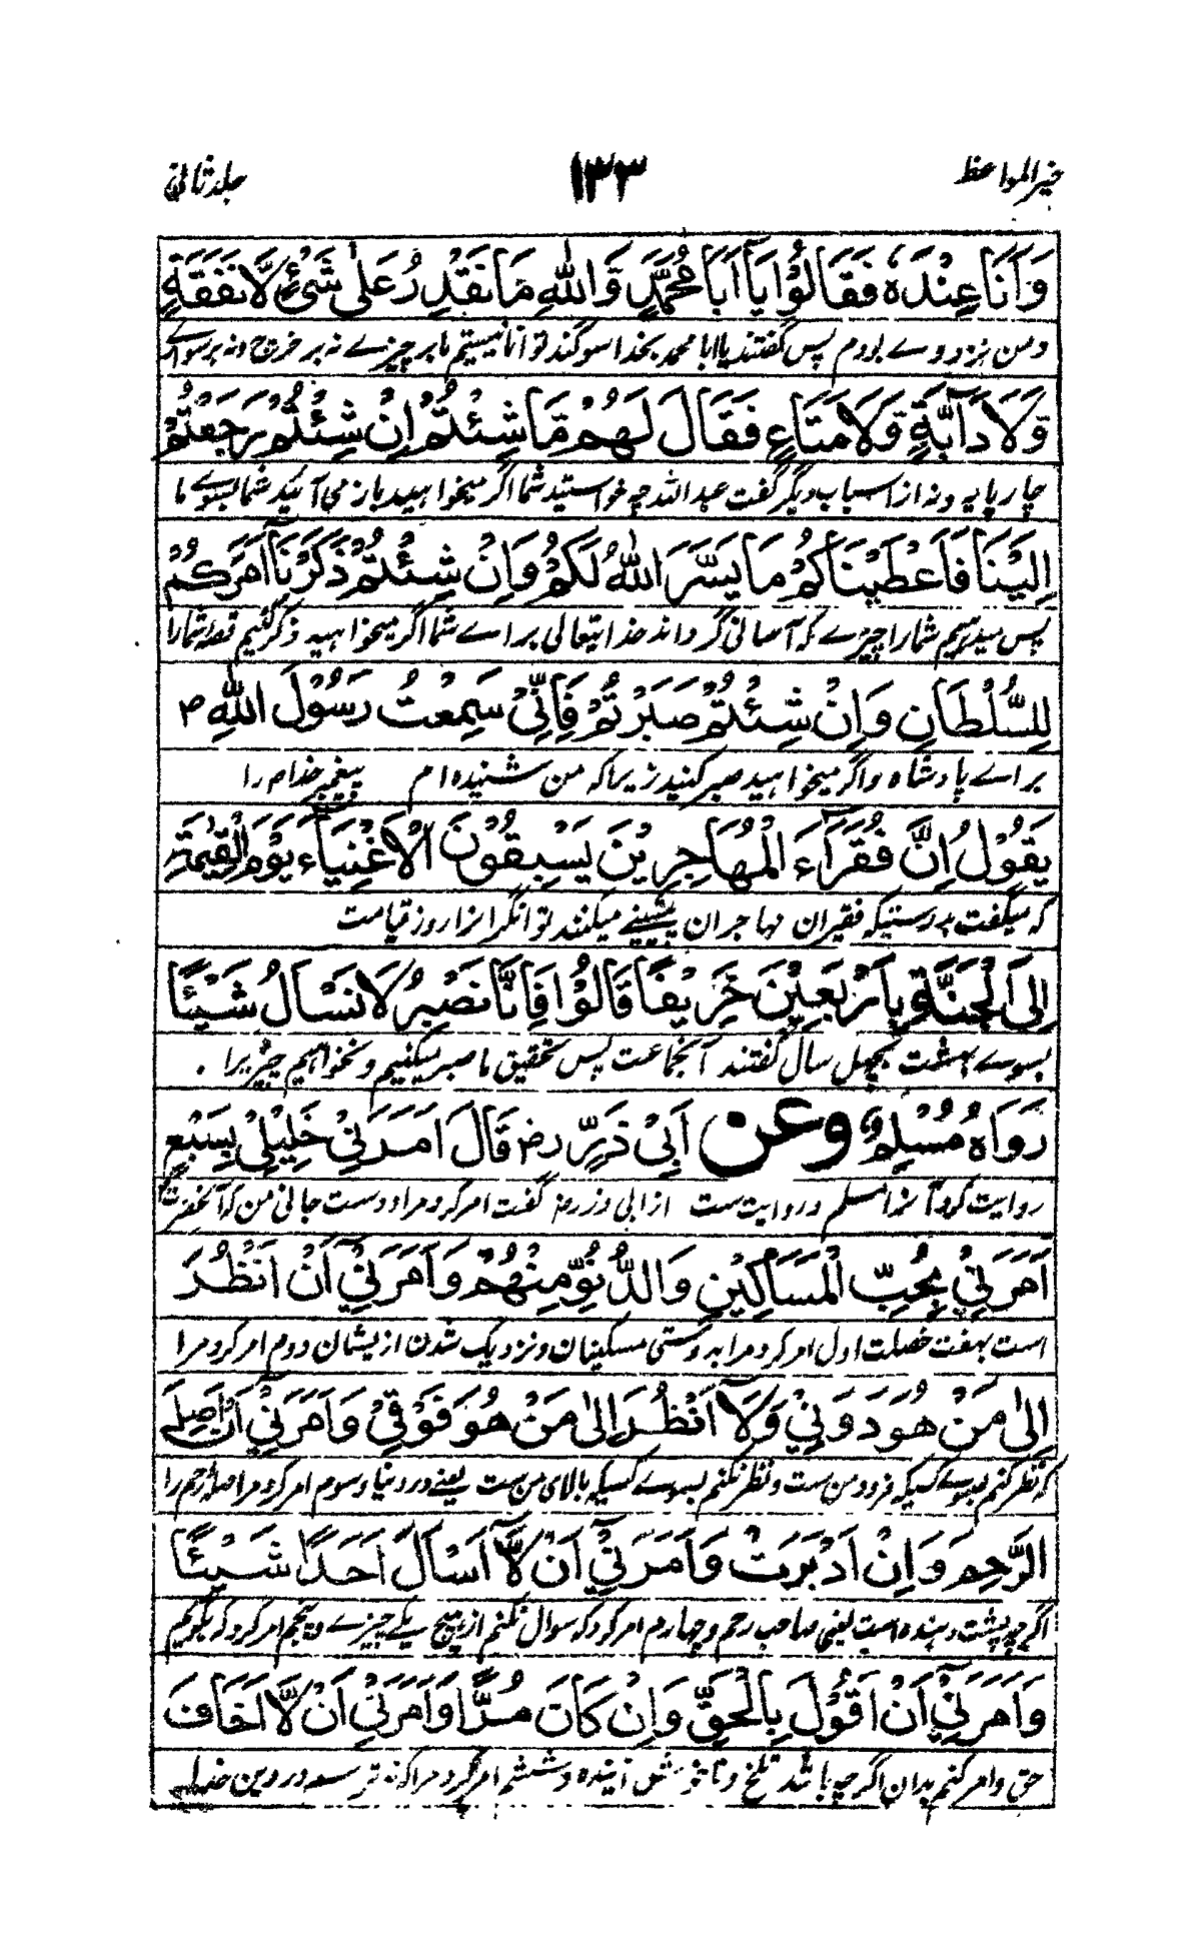 خیر المواعظ ۱۳۳ جلد ثانی
وَاَنَا عِنْدَهٗ فَقَالُوْا يَا اَبَا مُحَمَّدٍ وَّاللّٰهِ مَا نَقْدِرُ عَلٰى شَيْءٍ لَا نَفَقَةٍ
ومن نزد وے بودم پس گفتند یا ابا محمد بخدا سوگند توانا نیستیم ما بر چیزے نہ بر خرج ونہ بر سواری
وَّلَا دَآبَّةٍ وَّلَا مَتَاعٍ فَقَالَ لَهُمْ مَّا شِئْتُمْ اِنْ شِئْتُمْ رَجَعْتُمْ
چارپایہ ونہ از اسباب دیگر گفت عبد اللہ چہ خواستید شما اگر میخواہید باز می آئید شما بسوے ما
اِلَيْنَا فَاَعْطَيْنَاكُمْ مَا يَسَّرَ اللّٰهُ لَكُمْ وَاِنْ شِئْتُمْ ذَكَرْنَا اَمْرَكُمْ
پس میدہیم شما را چیزے کہ آسانی گرداند خدایتعالی براے شما اگر میخواہید ذکر کنیم قصہ شما را
لِلسُّلْطَانِ وَاِنْ شِئْتُمْ صَبَرْتُمْ فَاِنِّيْ سَمِعْتُ رَسُوْلَ اللّٰهِ ص
براے پادشاہ واگر میخواہید صبر کنید زیرا کہ من شنیدہ ام پیغمبر خدا م را
يَقُوْلُ اِنَّ فُقَرَآءَ الْمُهَاجِرِيْنَ يَسْبِقُوْنَ الْاَغْنِيَآءَ يَوْمَ الْقِيٰمَةِ
کہ میگفت بدرستیکہ فقیران مہاجران پیشینے میکنند توانگرانرا روز قیامت
اِلَى الْجَنَّةِ بِاَرْبَعِيْنَ خَرِيْفًا قَالُوْا فَاِنَّا نَصْبِرُ لَا نَسْاَلُ شَيْئًا
بسوے بہشت بچہل سال گفتند آنجماعت پس تحقیق ما صبر میکنیم ونخواہیم چیزیرا .
رَوَاهُ مُسْلِمٌ وعن اَبِيْ ذَرٍّ رض قَالَ اَمَرَنِيْ خَلِيْلِيْ بِسَبْعٍ
روایت کرد آنرا مسلم وروایت ست از ابی ذر رض گفت امر کرد مرا دوست جانی من کہ آنحضرت
اَمَرَنِيْ بِحُبِّ الْمَسَاكِيْنِ وَالدُّنُوِّ مِنْهُمْ وَاَمَرَنِيْ اَنْ اَنْظُرَ
است بہفت خصلت اول امر کرد مرا بدوستی مسکینان ونزدیک شدن از یشان دوم امر کرد مرا
اِلٰى مَنْ هُوَ دُوْنِيْ وَلَا اَنْظُرَ اِلٰى مَنْ هُوَ فَوْقِيْ وَاَمَرَنِيْ اَنْ اَصِلَ
کہ نظر کنم بسوے کسیکہ فرود من ست ونظر نکنم بسوے کسیکہ بالای من ست یعنے در دنیا وسوم امر کرد مرا صلہ رحم را
الرَّحِمَ وَاِنْ اَدْبَرَتْ وَاَمَرَنِيْ اَنْ لَّا اَسْاَلَ اَحَدًا شَيْئًا
اگرچہ پشت دہندہ است یعنی صاحب رحم وچہارم امر کرد کہ سوال نکنم از ہیچ یکے چیزے وپنجم امر کرد کہ بگویم
وَاَمَرَنِيْ اَنْ اَقُوْلَ بِالْحَقِّ وَاِنْ كَانَ مُرًّا وَاَمَرَنِيْ اَنْ لَّا اَخَافَ
حق وامر کنم بدان اگرچہ باشد تلخ وناخوش آیندہ وششم امر کرد مرا کہ نہ ترسم در دین خدا